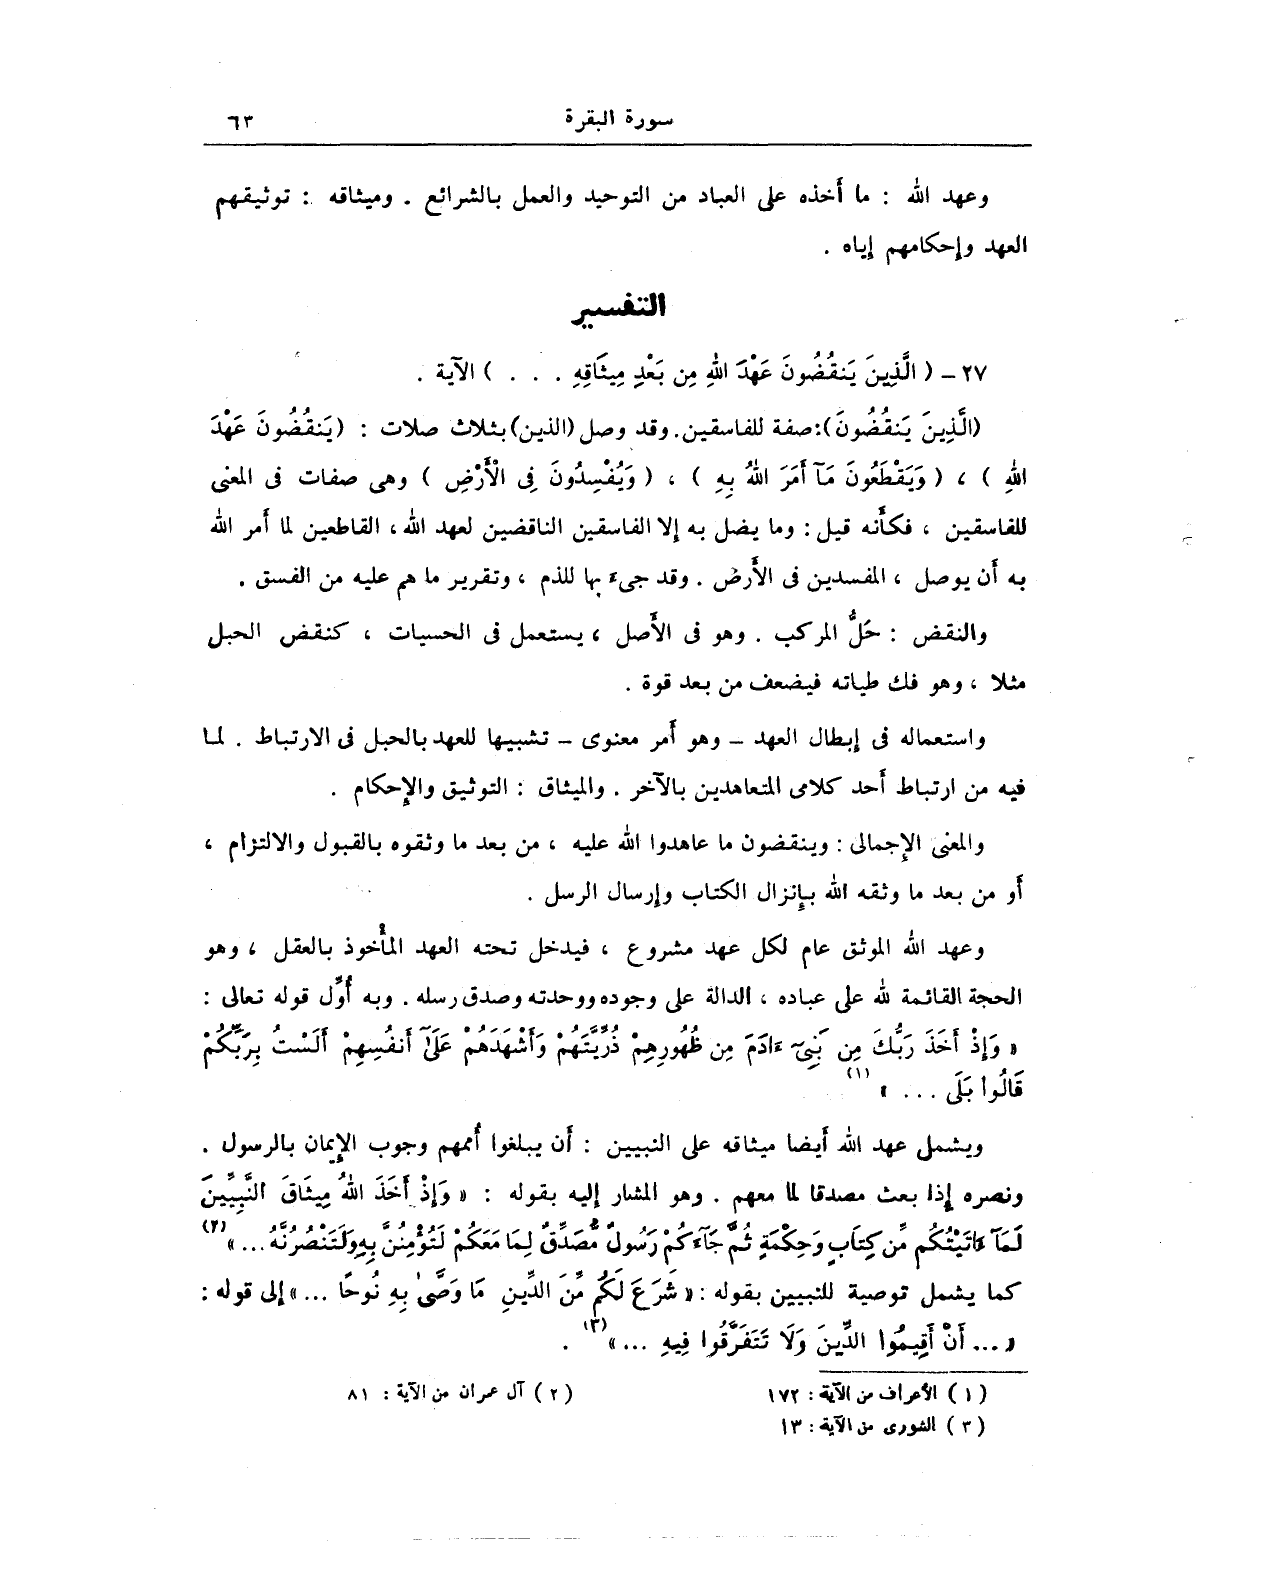 سورة البقرة ٦٣
وعهد الله : ما أخذه على العباد من التوحيد والعمل بالشرائع . وميثاقه : توثيقهم
العهد وإحكامهم إياه .
التفسير
٢٧ – ( الَّذِينَ يَنقُضُونَ عَهْدَ اللهِ مِن بَعْدِ مِيثَاقِهِ . . . ) الآية .
(الَّذِينَ يَنقُضُونَ):صفة للفاسقين. وقد وصل (الذين) بثلاث صلات : (يَنقُضُونَ عَهْدَ
اللهِ ) ، ( وَيَقْطَعُونَ مَآ أَمَرَ اللهُ بِهِ ) ، ( وَيُفْسِدُونَ فِى الْأَرْضِ ) وهى صفات فى المعنى
للفاسقين ، فكأنه قيل : وما يضل به إلا الفاسقين الناقضين لعهد الله ، القاطعين لما أمر الله
به أن يوصل ، المفسدين فى الأرض . وقد جىء بها للذم ، وتقرير ما هم عليه من الفسق .
والنقض : حَلُّ المركب . وهو فى الأصل ، يستعمل فى الحسيات ، كنقض الحبل
مثلا ، وهو فك طياته فيضعف من بعد قوة .
واستعماله فى إبطال العهد – وهو أمر معنوى – تشبيها للعهد بالحبل فى الارتباط . لما
فيه من ارتباط أحد كلامى المتعاهدين بالآخر . والميثاق : التوثيق والإحكام .
والمعنى الإجمالى : وينقضون ما عاهدوا الله عليه ، من بعد ما وثقوه بالقبول والالتزام ،
أو من بعد ما وثقه الله بإنزال الكتاب وإرسال الرسل .
وعهد الله الموثق عام لكل عهد مشروع ، فيدخل تحته العهد المأخوذ بالعقل ، وهو
الحجة القائمة لله على عباده ، الدالة على وجوده ووحدته وصدق رسله . وبه أُوِّل قوله تعالى :
« وَإِذْ أَخَذَ رَبُّكَ مِن بَنِىٓ ءَادَمَ مِن ظُهُورِهِمْ ذُرِّيَّتَهُمْ وَأَشْهَدَهُمْ عَلَىٰٓ أَنفُسِهِمْ أَلَسْتُ بِرَبِّكُمْ
قَالُوا بَلَى ... » (١)
ويشمل عهد الله أيضا ميثاقه على النبيين : أن يبلغوا أممهم وجوب الإيمان بالرسول .
ونصره إذا بعث مصدقا لما معهم . وهو المشار إليه بقوله : « وَإِذْ أَخَذَ اللهُ مِيثَاقَ النَّبِيِّينَ
لَمَآ ءَاتَيْتُكُم مِّن كِتَابٍ وَحِكْمَةٍ ثُمَّ جَآءَكُمْ رَسُولٌ مُّصَدِّقٌ لِمَا مَعَكُمْ لَتُؤْمِنُنَّ بِهِ وَلَتَنْصُرُنَّهُ ... » (٢)
كما يشمل توصية للنبيين بقوله : « شَرَعَ لَكُم مِّنَ الدِّينِ مَا وَصَّىٰ بِهِ نُوحًا ... » إلى قوله :
« ... أَنْ أَقِيمُوا الدِّينَ وَلَا تَتَفَرَّقُوا فِيهِ ... » (٣) .
( ١ ) الأعراف من الآية : ١٧٢ ( ٢ ) آل عمران من الآية : ٨١
( ٣ ) الشورى من الآية : ١٣